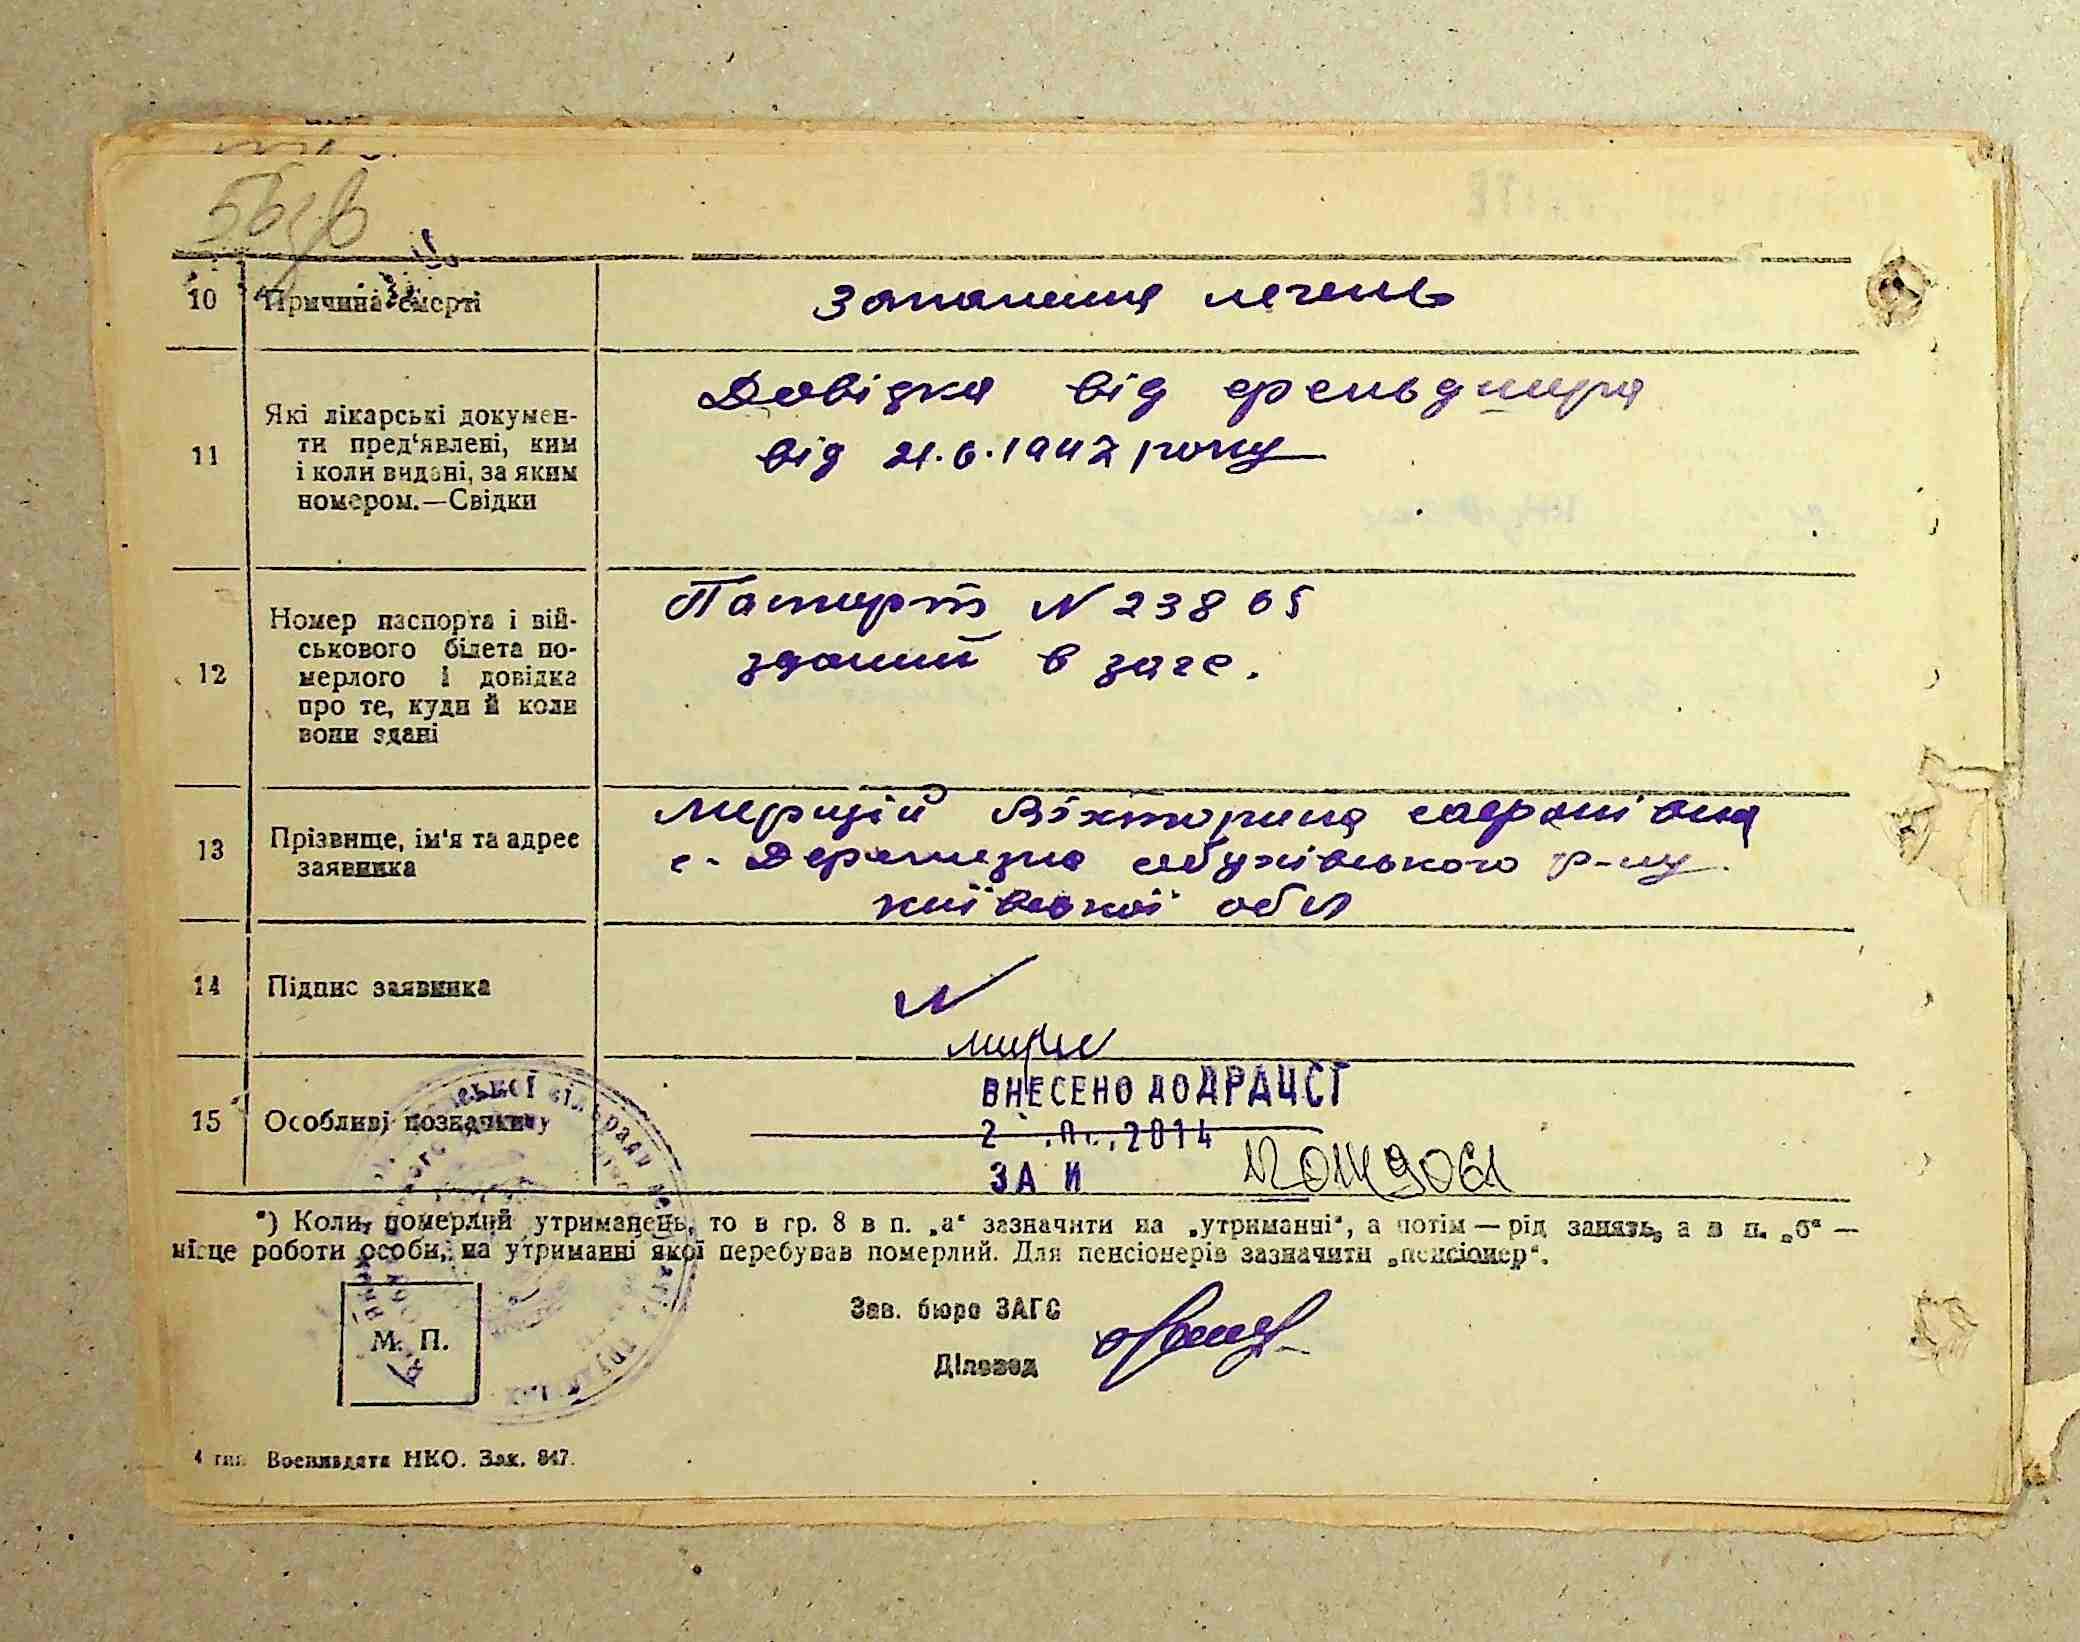 10 Причина смерті
Запалення легень
11 Які лікарські докумен-
ти пред'явлені, ким
і коли видані, за яким
номером.—Свідки
Довідка від фельдшера
від 21.6.1947 року
12 Номер паспорта і вій-
ськового білета по-
мерлого і довідка
про те, куди й коли
вони здані
Паспорт N 238 65
зданий в загс.
13 Прізвище, ім'я та адрес
заявника
Вікторина
с. Деремезна Обухівського р-ну
київської обл
14 Підпис заявника
15 Особливі позначки
ВНЕСЕНО ДО ДРАЦСГ
2014
ЗА И
*) Коли померлий утриманець, то в гр. 8 в п. „а“ зазначити на „утриманні“, а потім — рід занять, а в п. „б“ —
місце роботи особи, на утриманні якої перебував померлий. Для пенсіонерів зазначити „пенсіонер“.
М. П.
Зав. бюро ЗАГС
Діловод
4 тип. Воениздата НКО. Зак. 847.